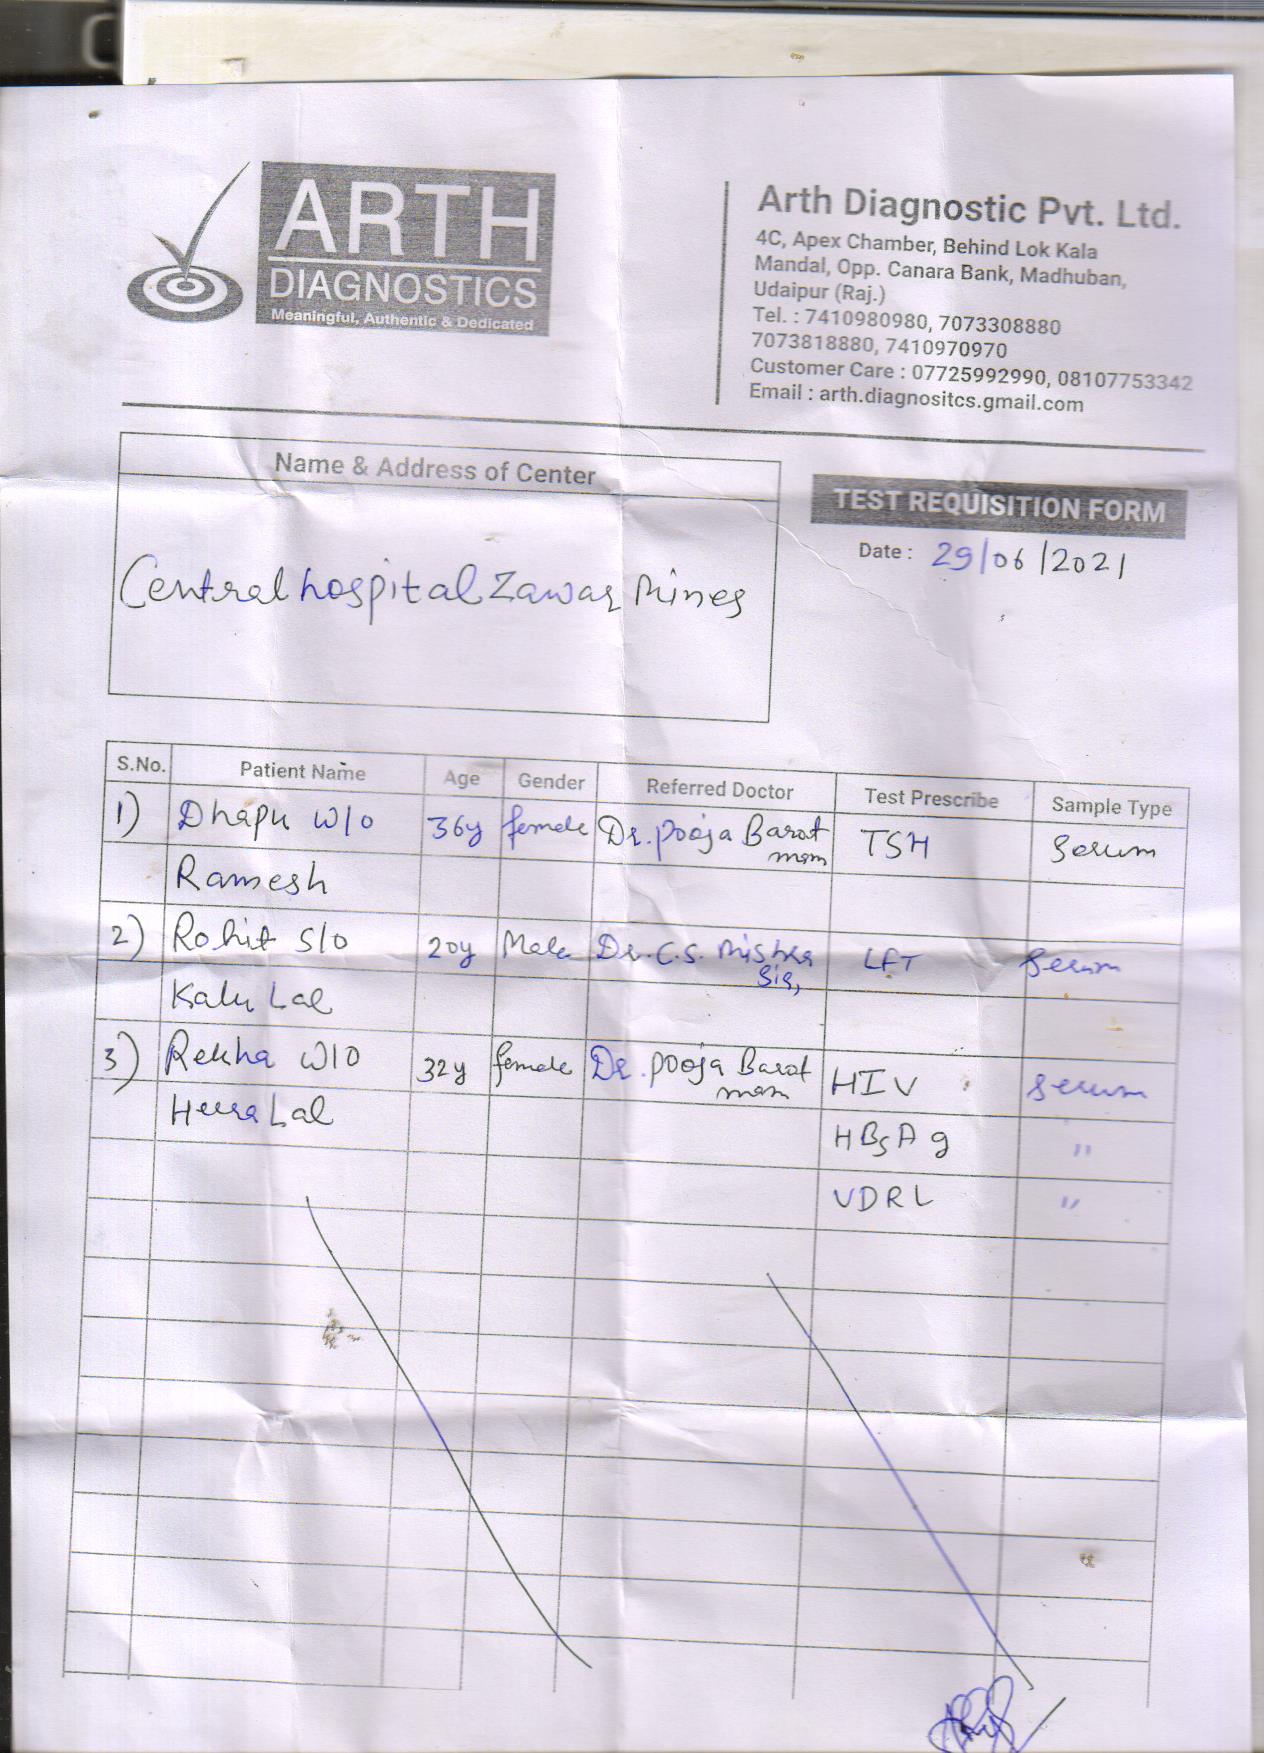 ARTH
DIAGNOSTICS
Meaningful, Authentic & Dedicated
Arth Diagnostic Pvt. Ltd.
4C, Apex Chamber, Behind Lok Kala
Mandal, Opp. Canara Bank, Madhuban,
Udaipur (Raj.)
Tel. : 7410980980, 7073308880
7073818880, 7410970970
Customer Care : 07725992990, 08107753342
Email : arth.diagnositcs.gmail.com
Name & Address of Center
TEST REQUISITION FORM
Date : 29/06/2021
Central hospital Zawar Mines
S.No. Patient Name Age Gender Referred Doctor Test Prescribe Sample Type
1) Dhapu W/o 36y female Dr. pooja Barat TSH Serum
mam
Ramesh
2) Rohit S/o 20y Male Dr. C.S. Mishra LFT Serum
Sir,
Kalu Lal
3) Rekha W/O 32y female Dr. pooja Barat HIV Serum
mam
Heera Lal
HBsAg "
VDRL "